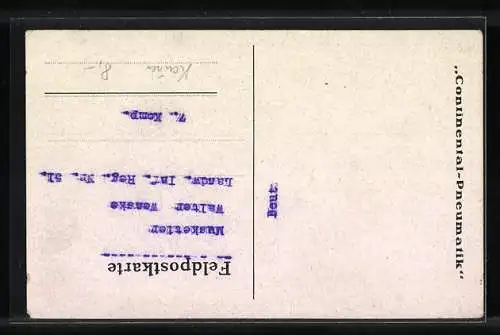 „Continental-Pneumatik“
Deut.
Feldpostkarte
Musketier
Walter Wenske
Landw. Inf. Reg. Nr. 51.
7. Komp.
8,-